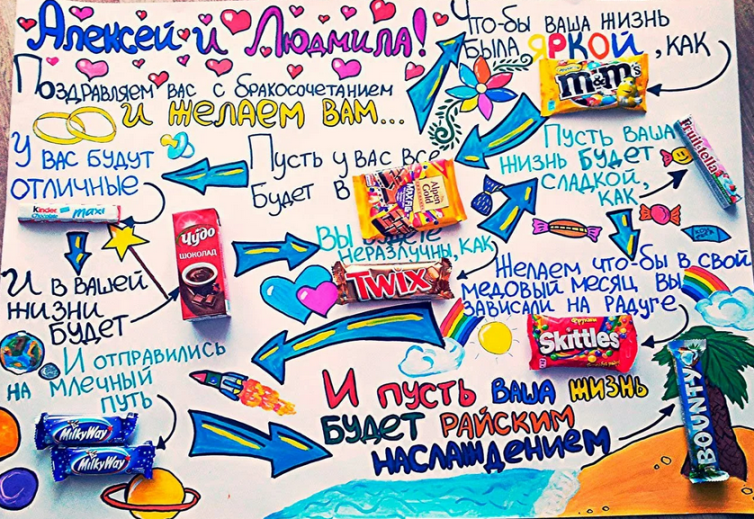 Алексей и Людмила!
Поздравляем вас с бракосочетанием
и желаем вам...
Что-бы ваша жизнь
была яркой, как
m&m's
Пусть у вас все
будет в
Alpen Gold
MAXFUN
У вас будут
отличные
Kinder
Chocolate maxi
И в вашей
жизни
будет
Чудо
шоколад
Вы будете
неразлучны, как
TWIX
Пусть ваша
жизнь будет
сладкой,
как
Fruittella
Желаем что-бы в свой
медовый месяц вы
зависали на радуге
Skittles
И отправились
на млечный
путь
MilkyWay
MilkyWay
И пусть ваша жизнь
будет райским
наслаждением
BOUNTY